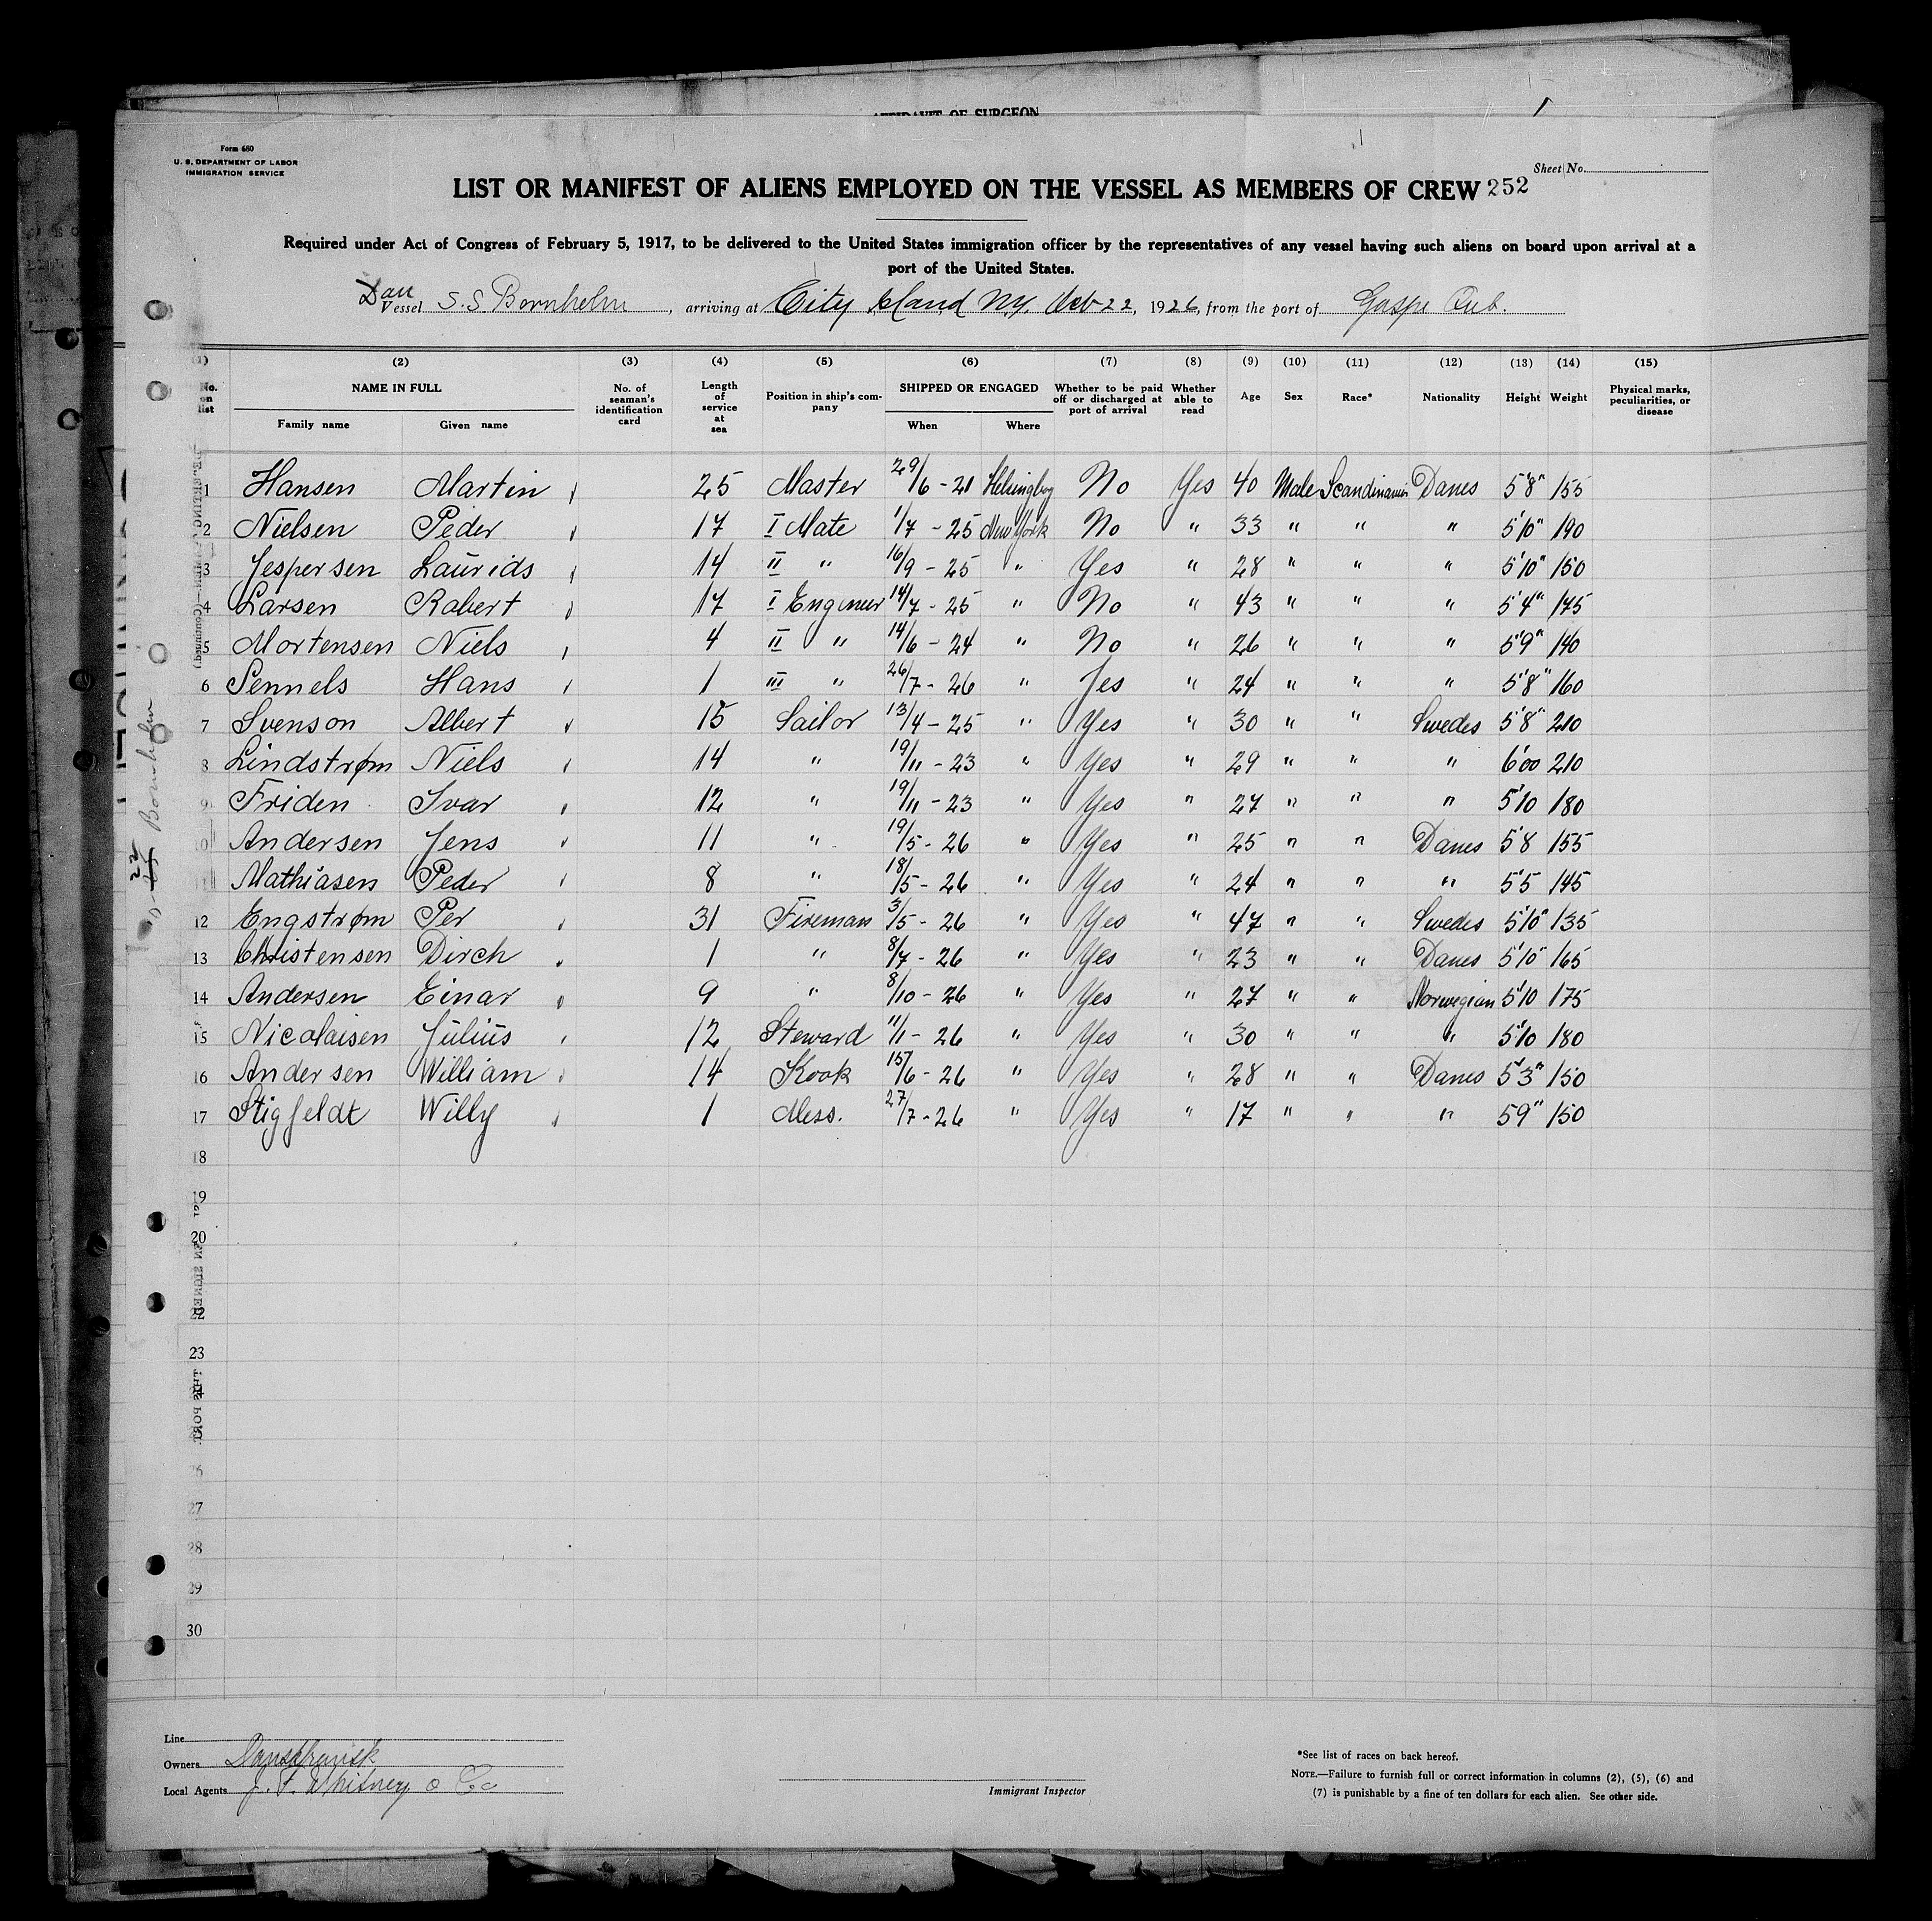 AFFIDAVIT OF SURGEON
Form 680
U. S. DEPARTMENT OF LABOR
IMMIGRATION SERVICE
Sheet No.
LIST OR MANIFEST OF ALIENS EMPLOYED ON THE VESSEL AS MEMBERS OF CREW 252
Required under Act of Congress of February 5, 1917, to be delivered to the United States immigration officer by the representatives of any vessel having such aliens on board upon arrival at a
port of the United States.
Dan
Vessel S.S. Bornholm, arriving at City Island N.Y. Oct 22, 1926, from the port of Gaspe Qub.
(1) (2) (3) (4) (5) (6) (7) (8) (9) (10) (11) (12) (13) (14) (15)
No. on list NAME IN FULL Family name Given name No. of seaman's identification card Length of service at sea Position in ship's company SHIPPED OR ENGAGED When Where Whether to be paid off or discharged at port of arrival Whether able to read Age Sex Race* Nationality Height Weight Physical marks, peculiarities, or disease
1 Hansen Martin 25 Master 29/6 - 21 Helsingborg No Yes 40 Male Scandinavian Danes 5'8" 155
2 Nielsen Peder 17 I Mate 1/7 - 25 New York No " 33 " " " 5'10" 190
3 Jespersen Laurids 14 II " 16/9 - 25 " Yes " 28 " " " 5'10" 150
4 Larsen Robert 17 I Engineer 14/7 - 25 " No " 43 " " " 5'4" 175
5 Mortensen Niels 4 II " 14/6 - 24 " No " 26 " " " 5'9" 140
6 Sennels Hans 1 III " 26/7 - 26 " Yes " 24 " " " 5'8" 160
7 Svenson Albert 15 Sailor 13/4 - 25 " Yes " 30 " " Swedes 5'8" 210
8 Lindstrøm Niels 14 " 19/11 - 23 " Yes " 29 " " " 6'00 210
9 Friden Ivar 12 " 19/11 - 23 " Yes " 27 " " " 5'10 180
10 Andersen Jens 11 " 19/5 - 26 " Yes " 25 " " Danes 5'8 155
11 Mathiasen Peder 8 " 18/5 - 26 " Yes " 24 " " " 5'5 145
12 Engstrøm Per 31 Fireman 3/5 - 26 " Yes " 47 " " Swedes 5'10" 135
13 Christensen Dirch 1 " 8/7 - 26 " Yes " 23 " " Danes 5'10" 165
14 Andersen Einar 9 " 8/10 - 26 " Yes " 27 " " Norwegian 5'10 175
15 Nicolaisen Julius 12 Steward 11/1 - 26 " Yes " 30 " " " 5'10 180
16 Andersen William 14 Kook 15/6 - 26 " Yes " 28 " " Danes 5'3" 150
17 Stigfeldt Willy 1 Mess. 27/7 - 26 " Yes " 17 " " " 59" 150
18
19
20
22
23
24
25
26
27
28
29
30
Bornholm
Line
Owners Danskfransk
Local Agents J. F. Whitney & Co
Immigrant Inspector
*See list of races on back hereof.
NOTE.—Failure to furnish full or correct information in columns (2), (5), (6) and
(7) is punishable by a fine of ten dollars for each alien. See other side.